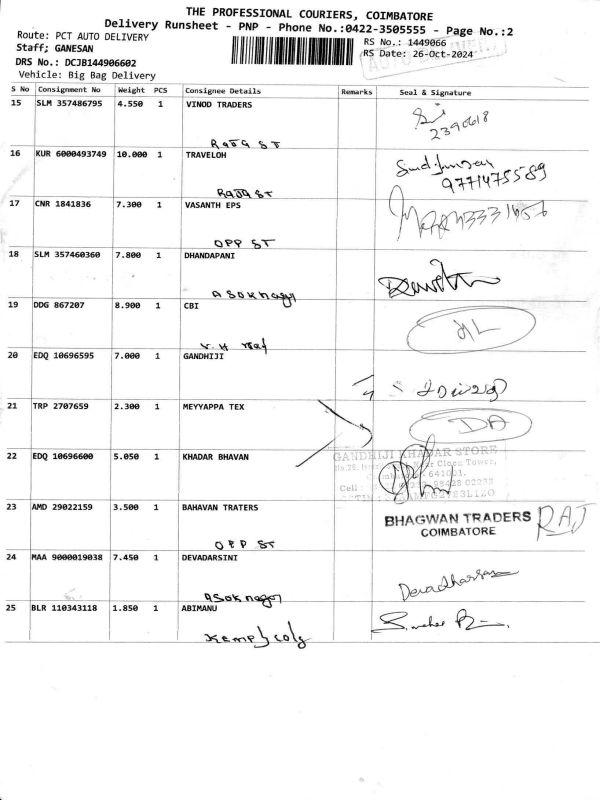 THE PROFESSIONAL COURIERS, COIMBATORE
Delivery Runsheet - PNP - Phone No.:0422-3505555 - Page No.:2
Route: PCT AUTO DELIVERY
RS No.: 1449066
Staff; GANESAN
RS Date: 26-Oct-2024
DRS No.: DCJB144906602
Vehicle: Big Bag Delivery
S No Consignment No Weight PCS Consignee Details Remarks Seal & Signature
15 SLM 357486795 4.550 1 VINOD TRADERS
2390618
Raja ST
16 KUR 6000493749 10.000 1 TRAVELOH
9771475589
Raja ST
17 CNR 1841836 7.300 1 VASANTH EPS
OPP ST
18 SLM 357460360 7.800 1 DHANDAPANI
Asok nagar
19 DDG 867207 8.900 1 CBI
V.H
20 EDQ 10696595 7.000 1 GANDHIJI
21 TRP 2707659 2.300 1 MEYYAPPA TEX
DA
22 EDQ 10696600 5.050 1 KHADAR BHAVAN
GANDHIJI KHADAR STORE
Clock Tower,
641001.
Cell : 98428 02233
23 AMD 29022159 3.500 1 BAHAVAN TRATERS
BHAGWAN TRADERS
COIMBATORE
RAJ
OPP ST
24 MAA 9000019038 7.450 1 DEVADARSINI
Asok nagar
Devadharsan
25 BLR 110343118 1.850 1 ABIMANU